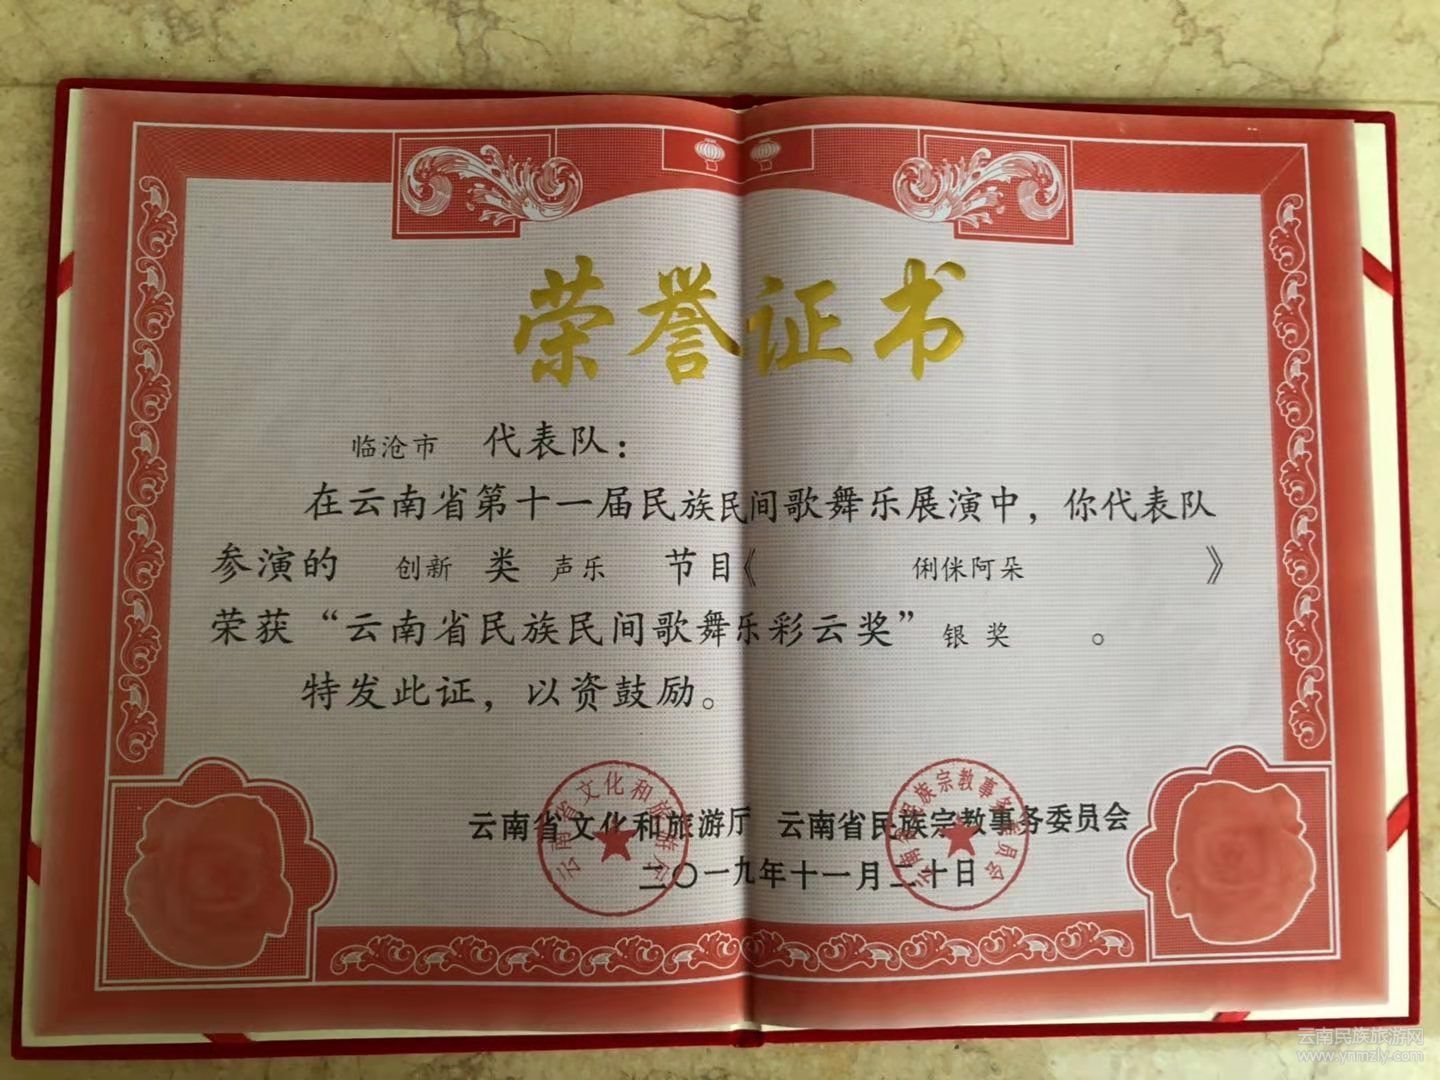 荣誉证书
临沧市 代表队：
在云南省第十一届民族民间歌舞乐展演中，你代表队
参演的 创新 类 声乐 节目《 俐侎阿朵 》
荣获“云南省民族民间歌舞乐彩云奖”银奖 。
特发此证，以资鼓励。
云南省文化和旅游厅 云南省民族宗教事务委员会
二〇一九年十一月二十日
云南省文化和旅游厅
云南省民族宗教事务委员会
云南民族旅游网
www.ynmzly.com